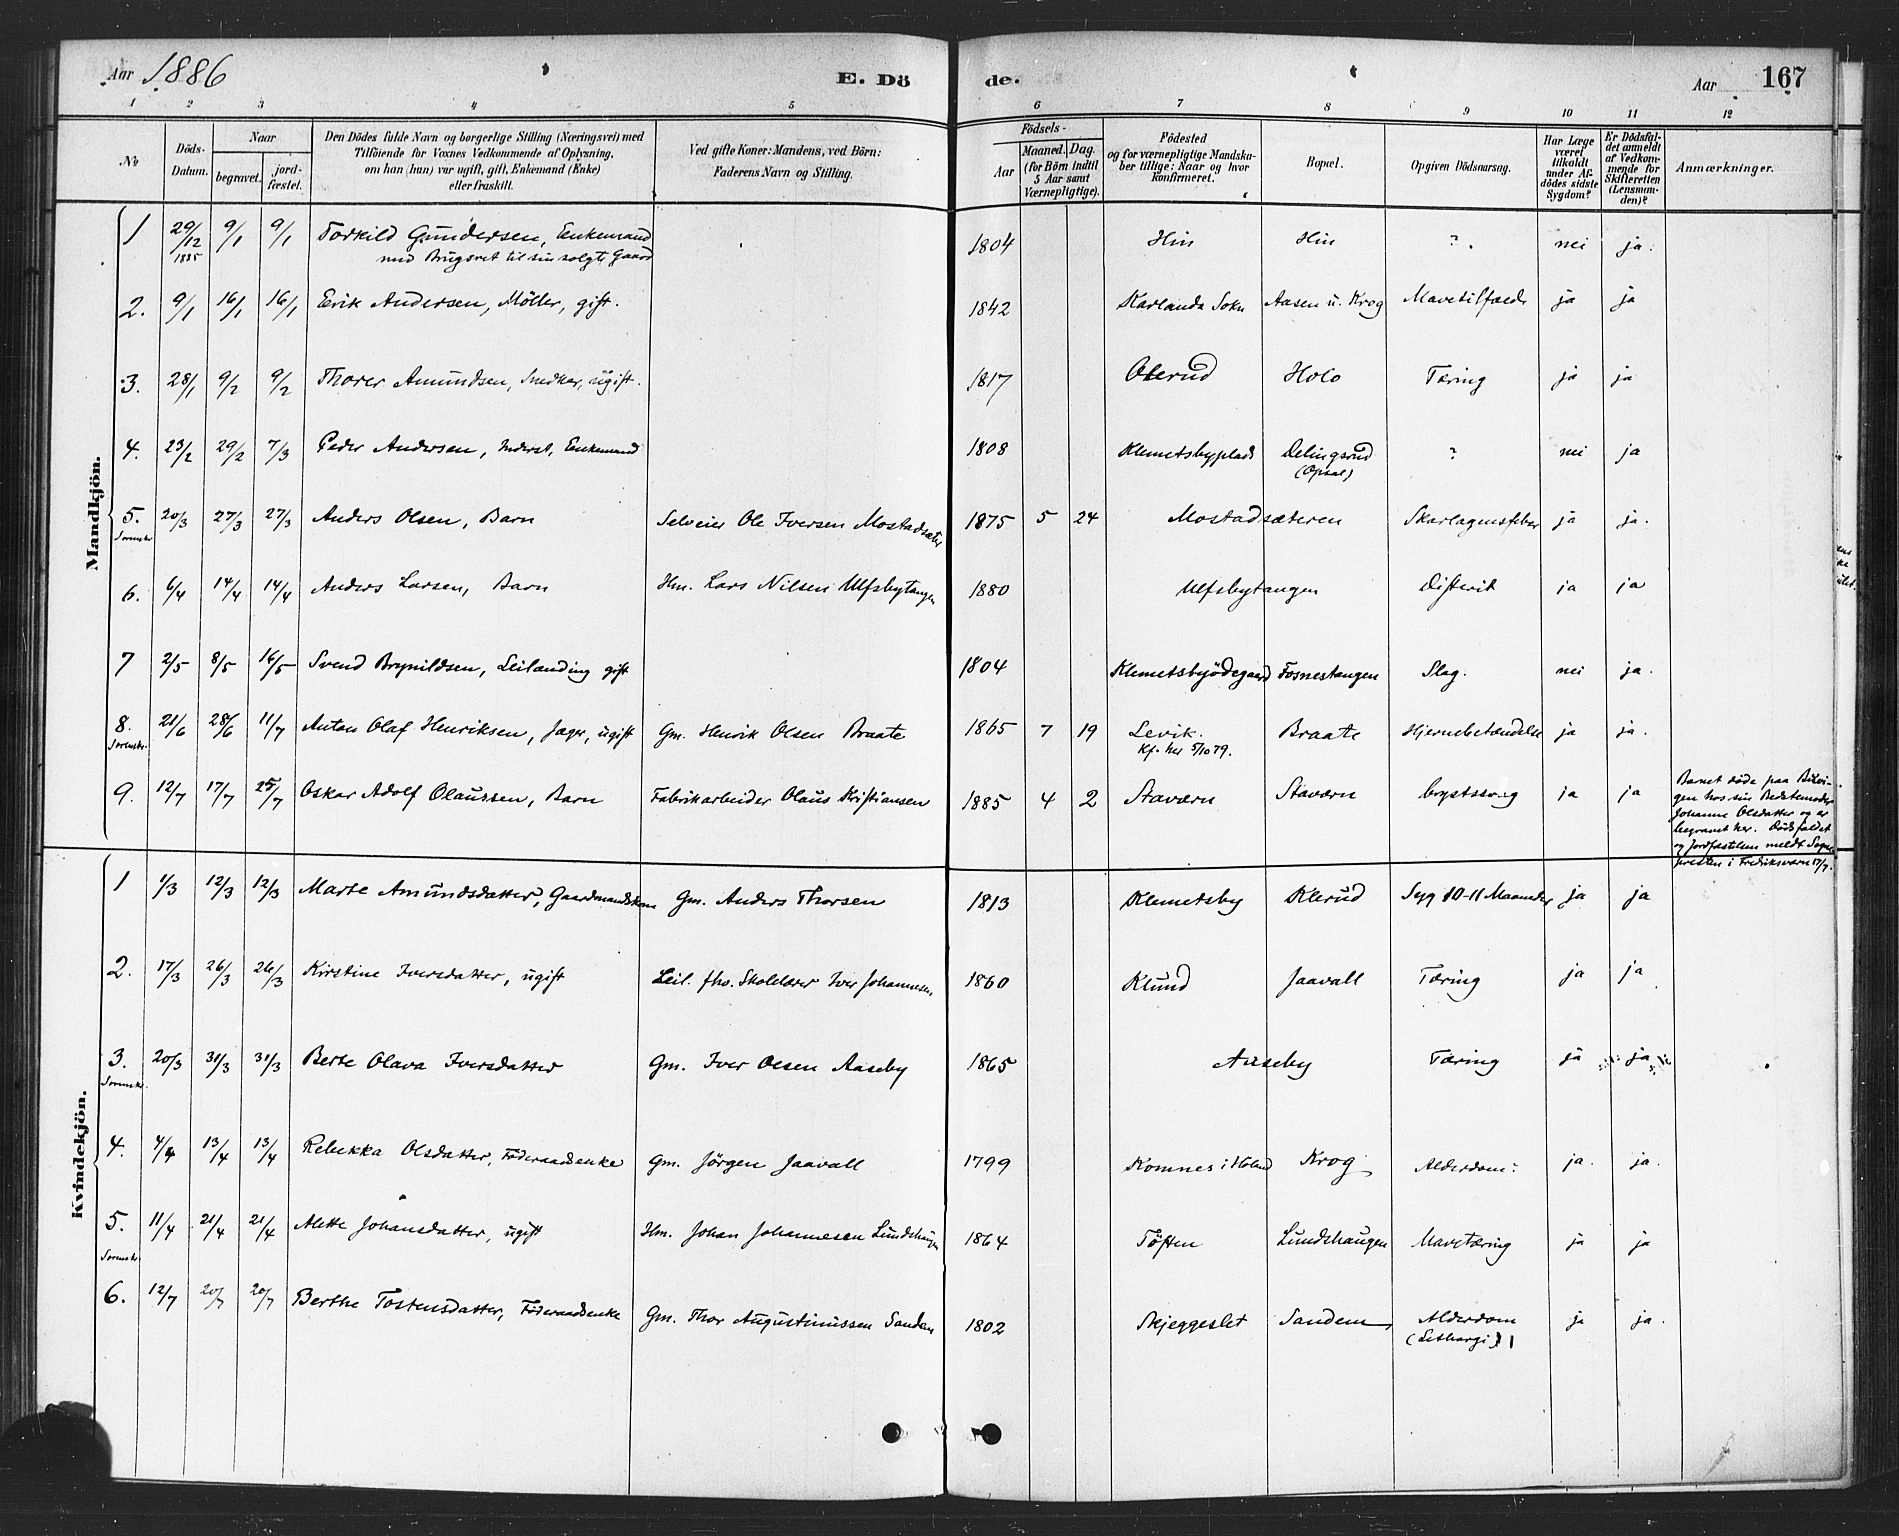 Aar 1886 E. Döde. Aar 167
1 2 3 4 5 6 7 8 9 10 11 12
No
Döds-Datum.
Naar
begravet. jordfæstet.
Den Dödes fulde Navn og borgerlige Stilling (Næringsvei) med
Tilföiende for Voxnes Vedkommende af Oplysning,
om han (hun) var ugift, gift, Enkemand (Enke)
eller fraskilt.
Ved gifte Koner: Mandens, ved Börn:
Faderens Navn og Stilling.
Födsels-
Aar Maaned. Dag.
(for Börn indtil
5 Aar samt
Værnepligtige).
Födested
og for værnepligtige Mandskaber tillige: Naar og hvor
konfirmeret.
Bopæl.
Opgiven Dödsaarsag.
Har Læge været tilkaldt under Afdödes sidste Sygdom?
Er Dödsfaldet anmeldt af Vedkommende for Skifteretten (Lensmanden)?
Anmærkninger.
Mandkjön.
1 29/12 1885 9/1 9/1 Torkild Gundersen, Enkemand 1804 Hin Hin ? nei ja.
med Brugsret til sin solgte Gaard
2. 9/1 16/1 16/1 Erik Andersen, Möller, gift. 1842 Karlanda Sokn Aasen u. Krog Mavetilfælde ja ja
3. 28/1 9/2 9/2 Thorer Amundsen, Snedker, ugift. 1817 Olerud Holo Tæring ja ja
4. 23/2 29/2 7/3 Peder Andersen, Inderst, Enkemand 1808 Klemetsbyplads Delingsrud ? nei ja
(Opsal)
5. 20/3 27/3 27/3 Anders Olsen, Barn Selveier Ole Iversen Mostadsæter 1875 5 24 Mostadsæteren Skarlagensfeber ja ja.
6. 6/4 14/4 14/4 Anders Larsen, Barn Hm. Lars Nilsen Ulfsbytangen 1880 Ulfsbytangen Difterit ja ja
7 2/5 8/5 16/5 Svend Brynildsen, Leilending gift 1804 Klemetsbyödegaard Fosnestangen Slag. nei ja.
8. 21/6 28/6 11/7 Anton Olaf Henriksen, Jæger, ugift Gm. Henrik Olsen Braate 1865 7 19 Levik. Braate Hjernebetændelse ja ja.
Kf. her 5/10 79.
9. 12/7 17/7 25/7 Oskar Adolf Olaussen, Barn Fabrikarbeider Olaus Kristiansen 1885 4 2 Staværn Staværn brystsvag ja ja
Barnet döde paa
hos sin Bedstemoder
Johanne Olsdatter og er
begravet her. Dödsfaldet
og Jordfæstelsen meldt Sogne
presten i Fredriksværn 17/7.
Kvindekjön.
1 1/3 12/3 12/3 Marte Amundsdatter, Gaardmandskone Gm. Anders Thorsen 1813 Klemetsby Klerud Syg 10-11 Maaneder ja ja
2. 17/3 26/3 26/3 Kirstine Iversdatter, ugift Leil. fhv. Skolelærer Iver Johannesen 1860 Klund Jaavall Tæring ja ja
3. 20/3 31/3 31/3 Berte Olava Iversdatter Gm. Iver Olsen Aaseby 1865 Aaseby Tæring ja ja
4. 4/4 13/4 13/4 Rebekka Olsdatter, Föderaadsenke Gm. Jörgen Jaavall 1799 Komnes i Höland Krog Alderdom. ja. ja.
5. 11/4 21/4 21/4 Alette Johansdatter, ugift Hm. Johan Johannesen Lundshaugen 1864 Töften Lundshaugen Mavetæring ja ja
6. 12/7 20/7 20/7 Berthe Tostensdatter, Föderaadsenke Gm. Thor Augustinussen Sandem 1802 Skjeggeslet Sandem Alderdom ja ja.
(Lethargi)